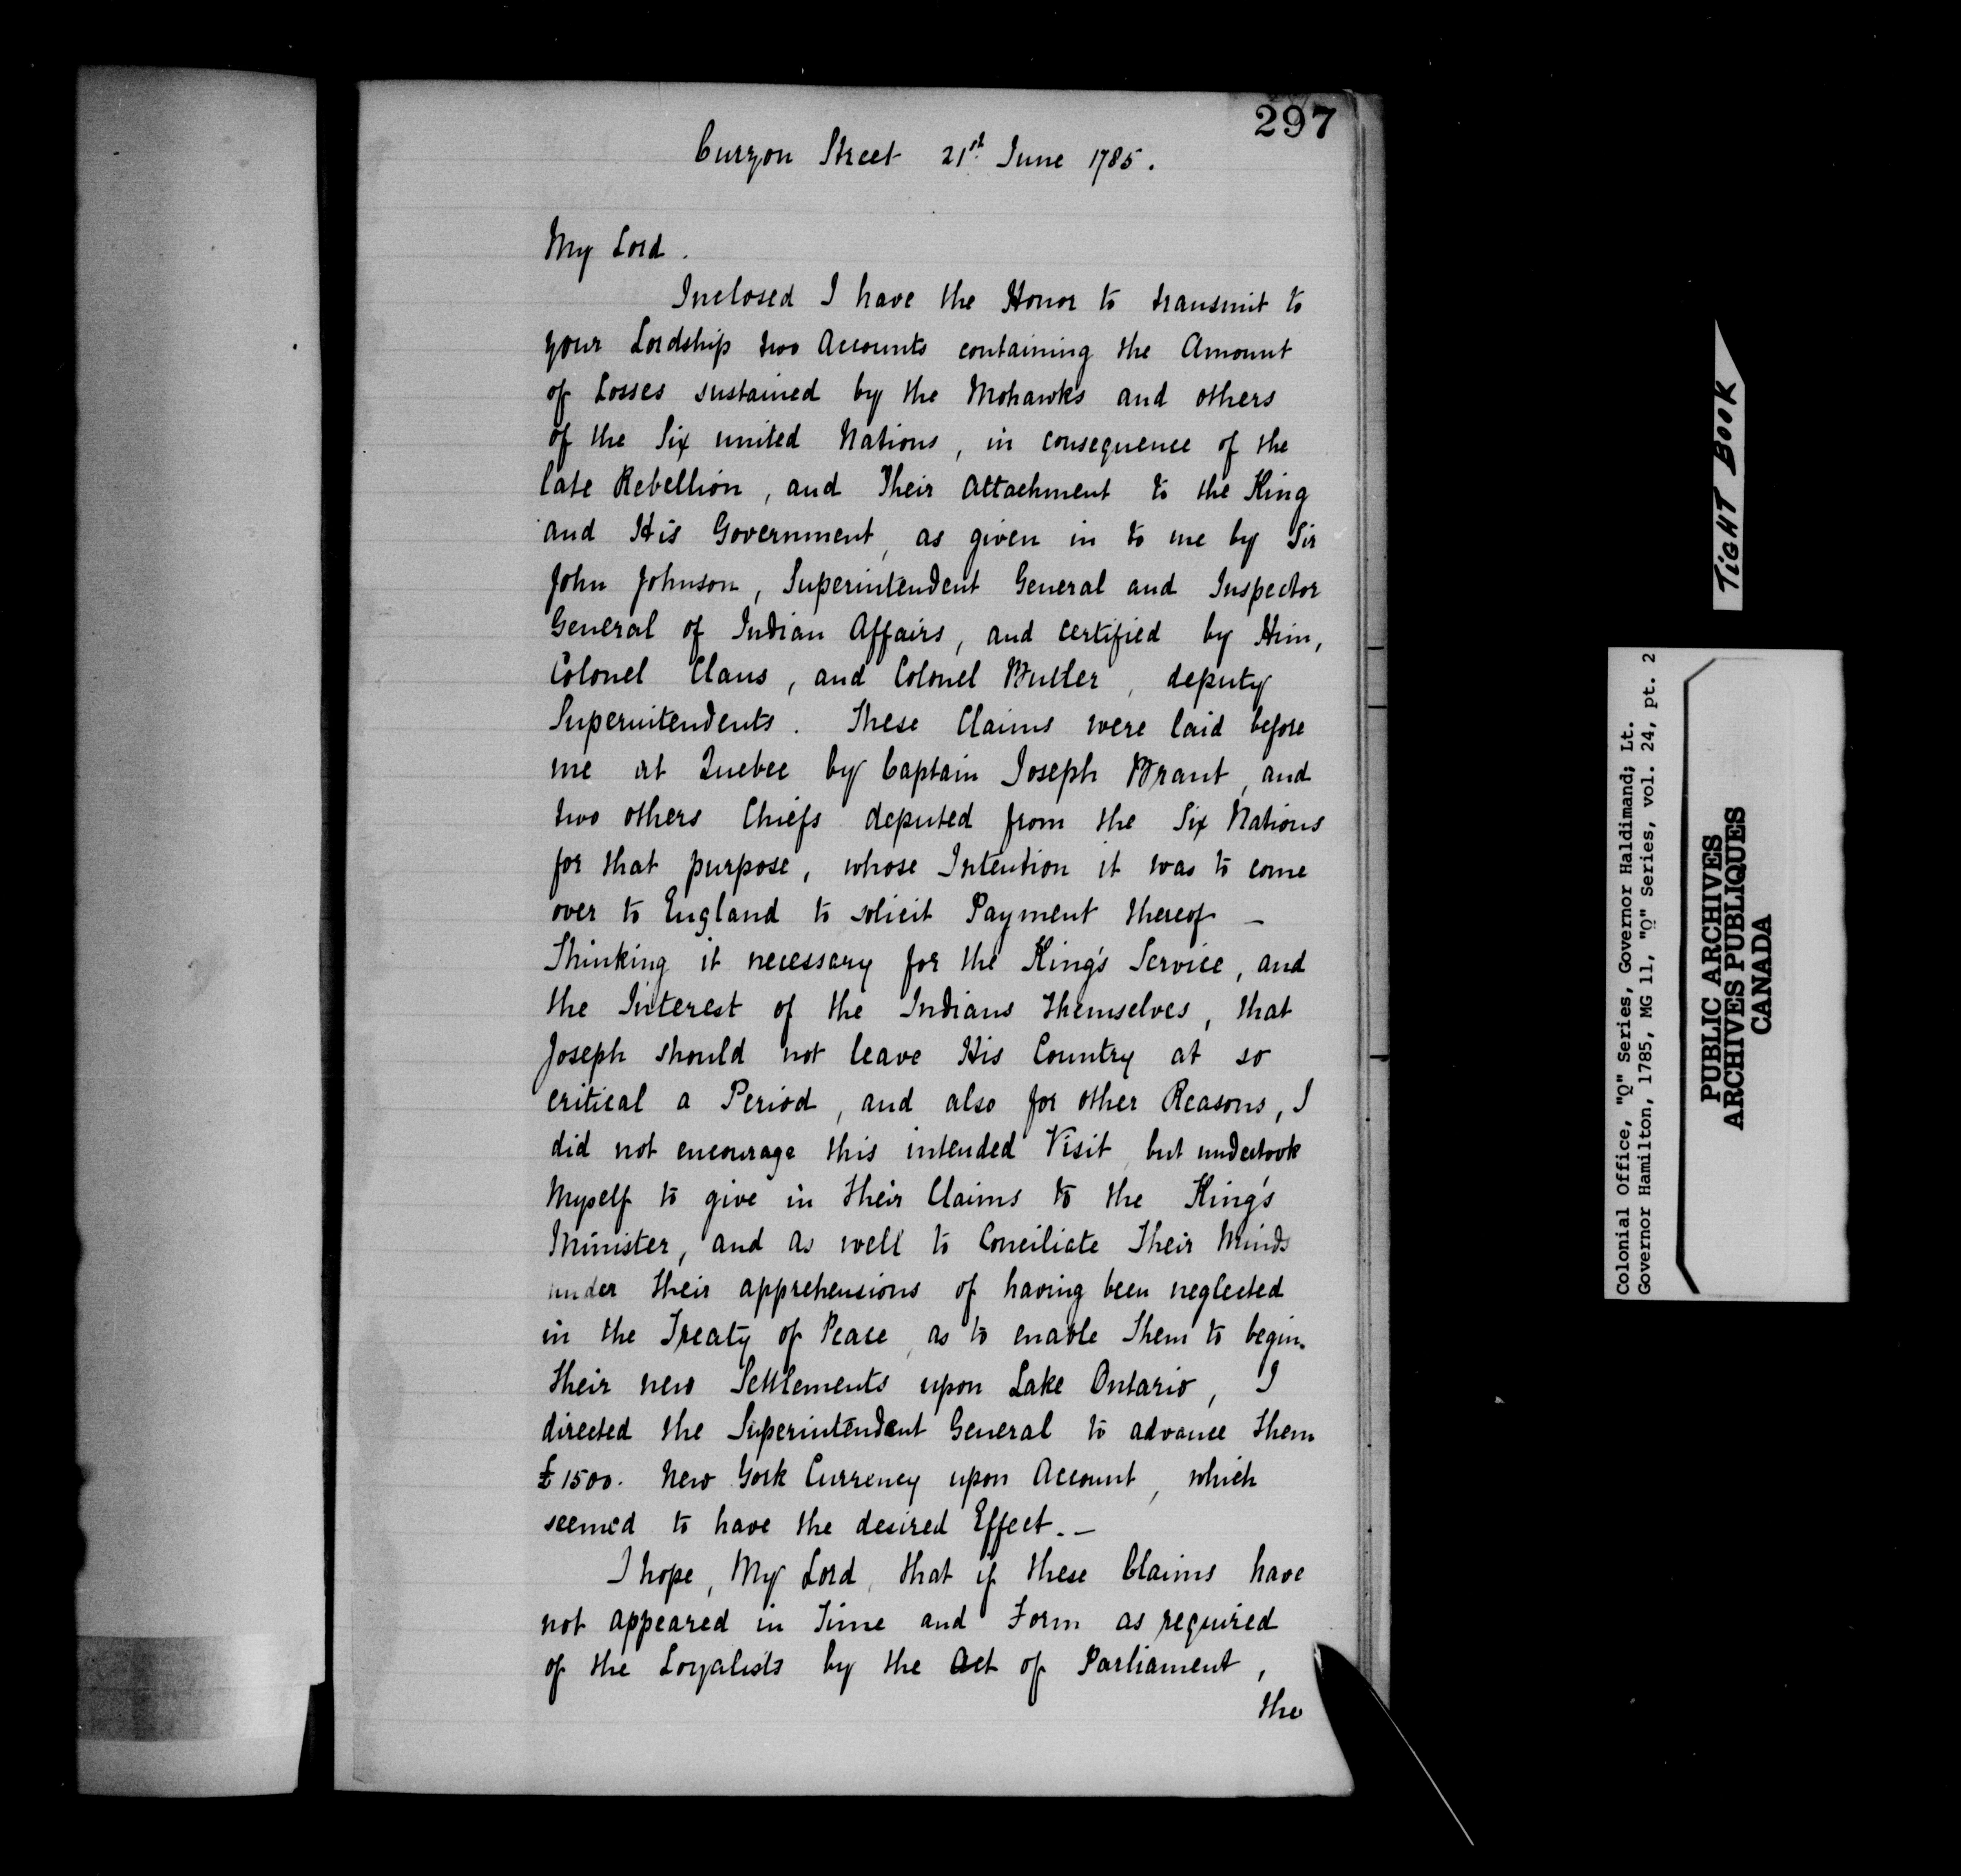 297
Curzon Street 21st June 1785.
My Lord.
Inclosed I have the Honor to transmit to
your Lordship two Accounts containing the Amount
of Losses sustained by the Mohawks and others
of the Six united Nations, in consequence of the
late Rebellion, and Their Attachment to the King
and His Government, as given in to me by Sir
John Johnson, Superintendent General and Inspector
General of Indian Affairs, and certified by Him,
Colonel Claus, and Colonel Butler, deputy
Superintendents. These Claims were laid before
me at Quebec by Captain Joseph Brant, and
two others Chiefs deputed from the Six Nations
for that purpose, whose Intention it was to come
over to England to solicit Payment thereof —
Thinking it necessary for the King's Service, and
the Interest of the Indians themselves, that
Joseph should not leave His Country at so
critical a Period, and also for other Reasons, I
did not encourage this intended Visit, but undertook
Myself to give in their Claims to the King's
Minister, and as well to Conciliate Their Minds
under their apprehensions of having been neglected
in the Treaty of Peace, as to enable Them to begin
their new Settlements upon Lake Ontario, I
directed the Superintendant General to advance them
£1500. New York Currency upon Account, which
seem'd to have the desired Effect. —
I hope, My Lord, that if these Claims have
not appeared in Time and Form as required
of the Loyalists by the Act of Parliament,
the
TIGHT BOOK
Colonial Office, "Q" Series, Governor Haldimand; Lt.
Governor Hamilton, 1785, MG 11, "Q" Series, vol. 24, pt. 2
PUBLIC ARCHIVES
ARCHIVES PUBLIQUES
CANADA